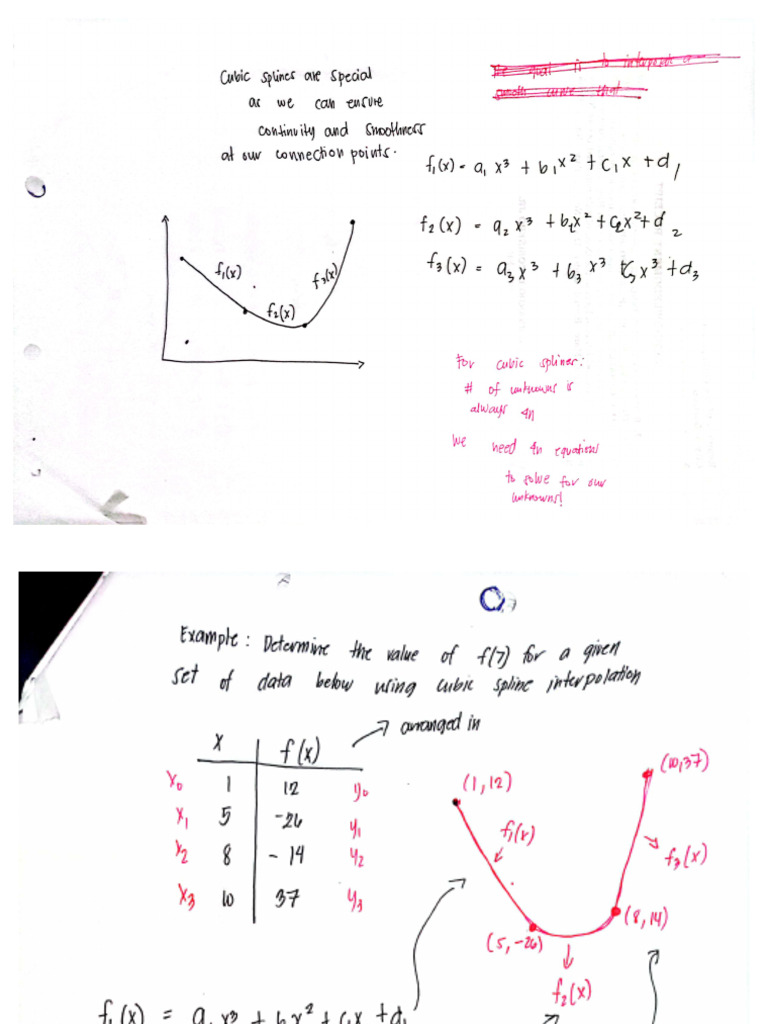 Cubic splines are special
as we can ensure
continuity and smoothness
at our connection points.
f₁(x) = a₁ x³ + b₁x² + c₁x + d₁
f₂(x) = a₂ x³ + b₂x² + c₂x² + d₂
f₃(x) = a₃ x³ + b₃ x³ + c₃x³ + d₃
f₁(x)
f₂(x)
f₃(x)
For cubic splines:
# of unknowns is
always 4n
We need 4n equations
to solve for our
unknowns!
Example: Determine the value of f(7) for a given
set of data below using cubic spline interpolation
arranged in
x f(x)
x₀ 1 12 y₀
x₁ 5 -26 y₁
x₂ 8 -14 y₂
x₃ 10 37 y₃
(1, 12)
(10, 37)
f₁(x)
f₃(x)
(8, 14)
(5, -26)
f₂(x)
f₁(x) = a₁x³ + bx² + c₁x + d₁